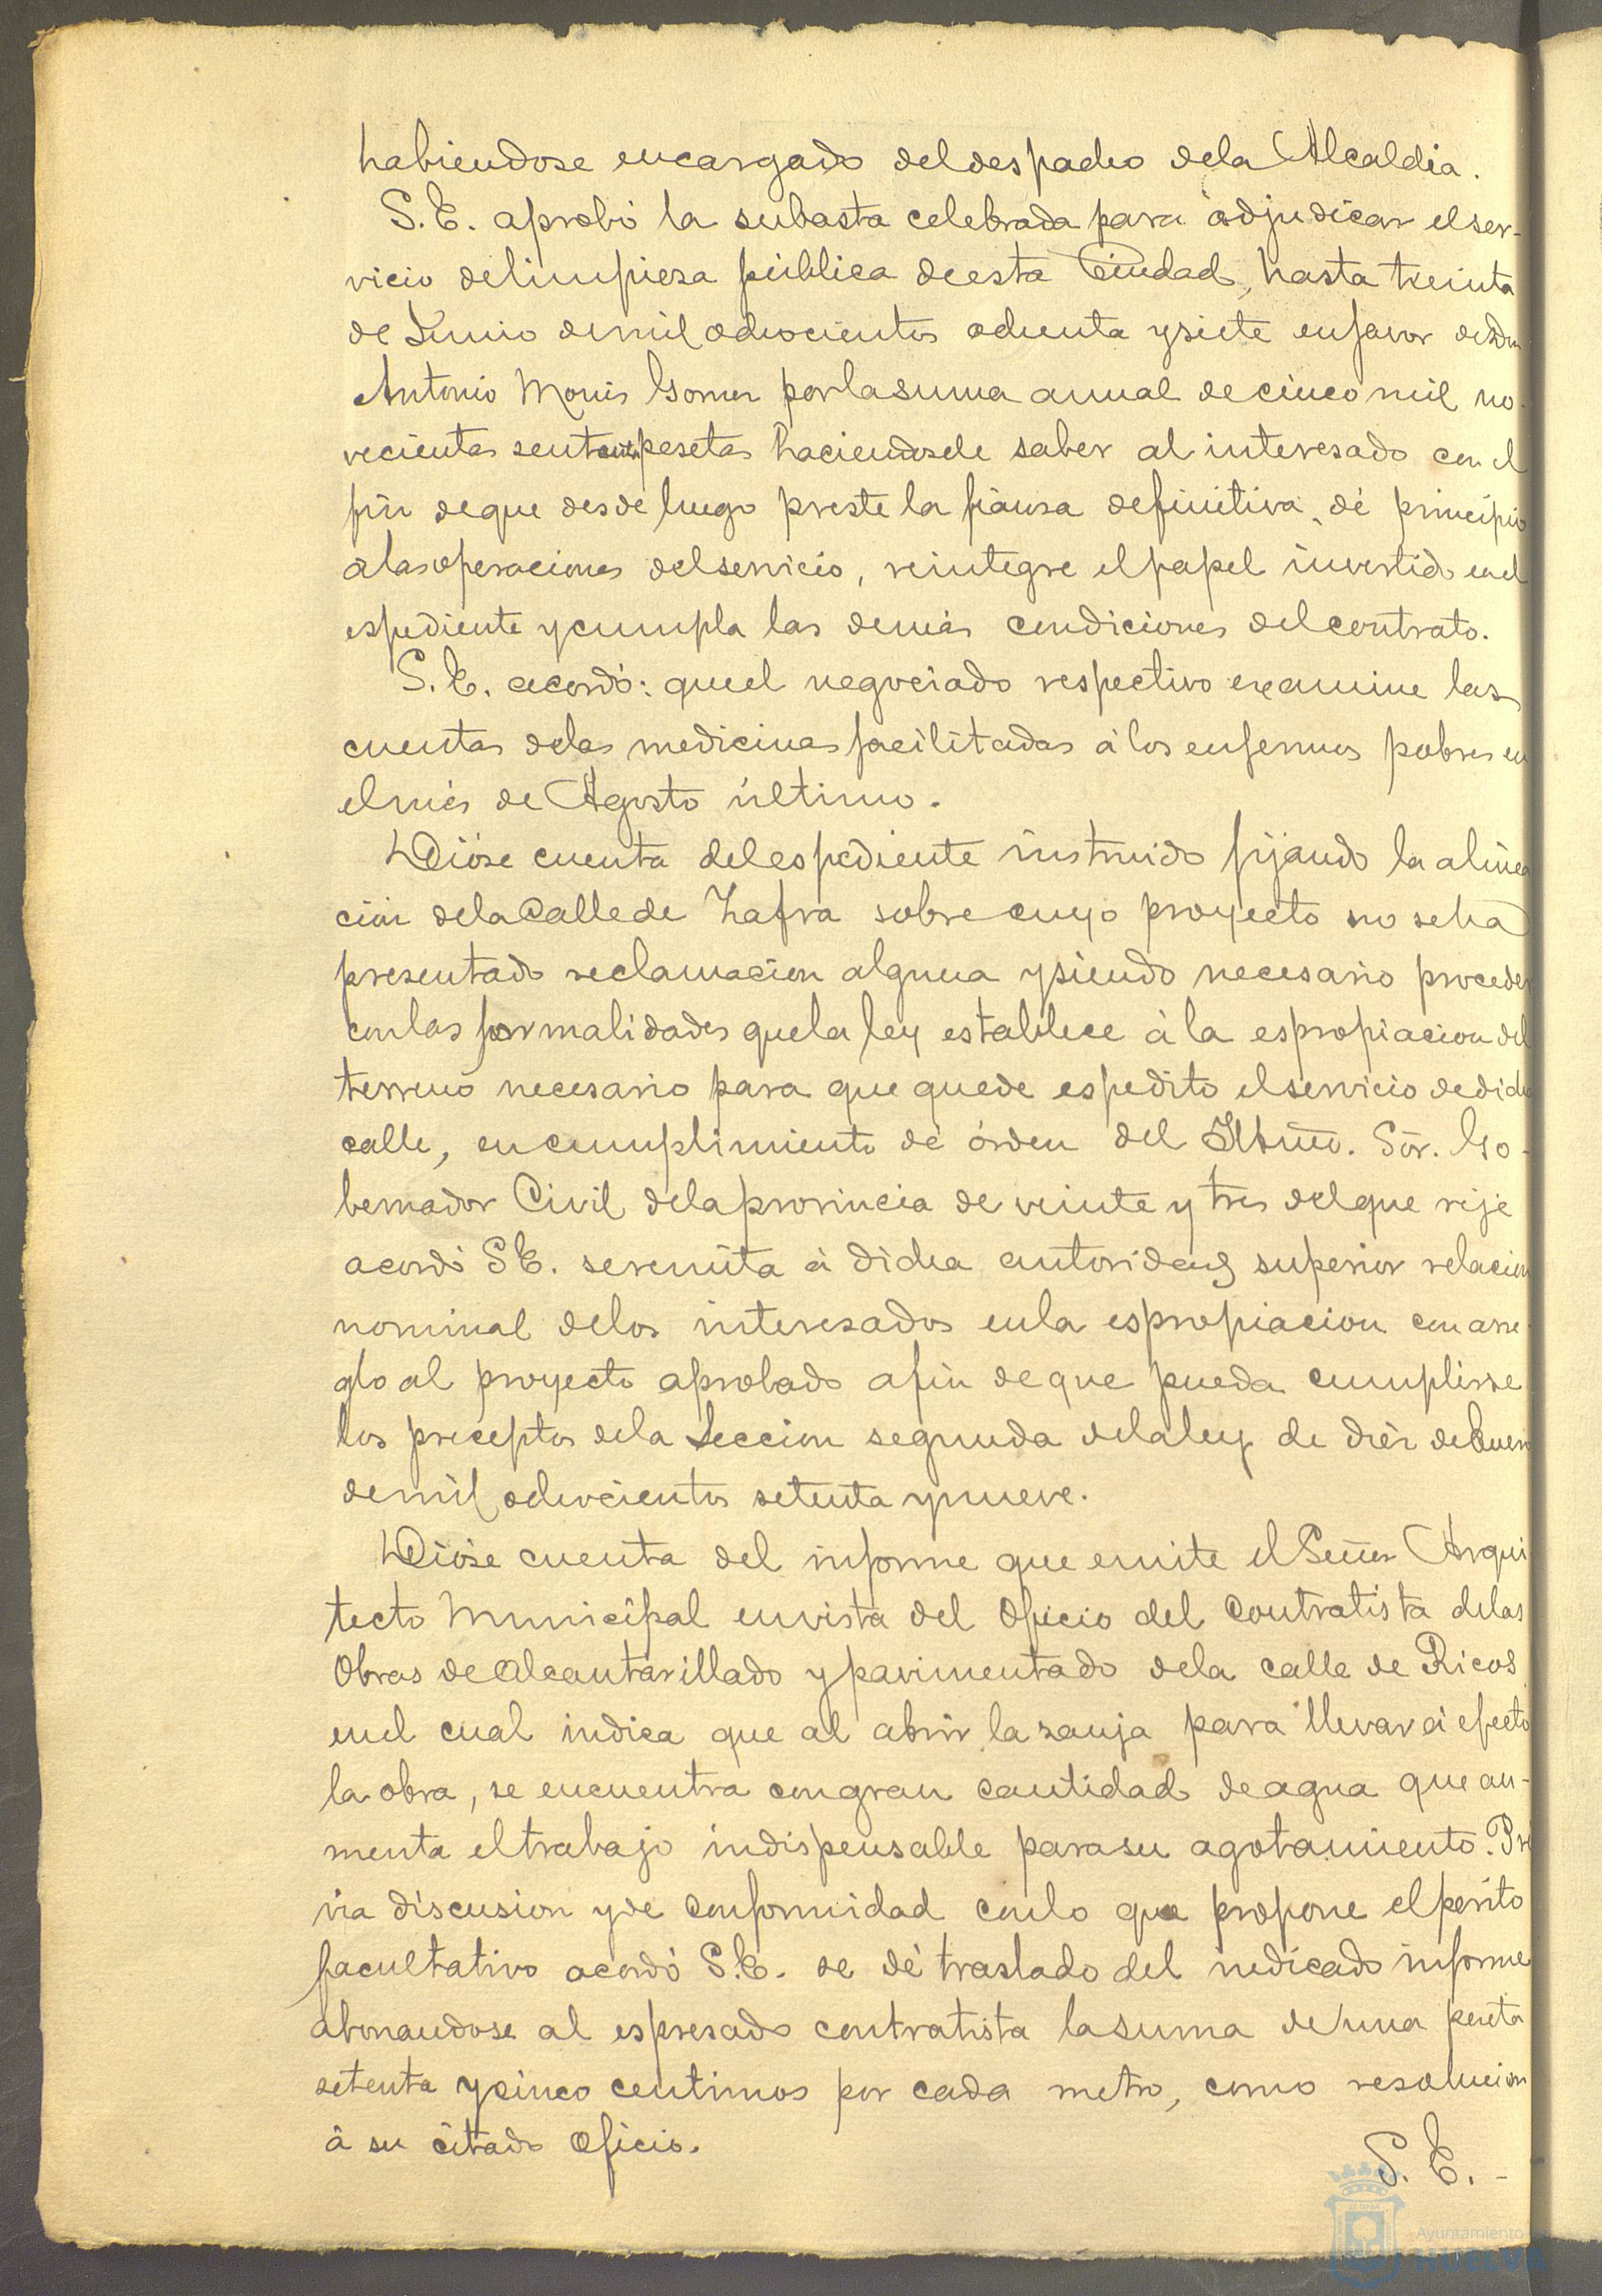 habiendose encargado del despacho de la Alcaldia.
S. E. aprobó la subasta celebrada para adjudicar el ser-
vicio de limpieza pública de esta Ciudad, hasta treinta
de Junio de mil ochocientos ochenta y siete en favor de Don
Antonio Monis Gomez por la suma anual de cinco mil no-
vecientas pesetas haciendosele saber al interesado con el
fin de que desde luego preste la fianza definitiva, dé principio
a las operaciones del servicio, reintegre el papel invertido en el
espediente y cumpla las demás condiciones del contrato.
S. E. acordó: que el negociado respectivo examine las
cuentas de las medicinas facilitadas á los enfermos pobres en
el més de Agosto último.
Dióse cuenta del espediente instruido fijando la alinea
ción de la Calle de Zafra sobre cuyo proyecto no se ha
presentado reclamacion alguna y siendo necesario proceder
con las formalidades que la ley establece á la espropiacion del
terreno necesario para que quede espedito el servicio de dicha
calle, en cumplimiento de órden del Iltmo. Sór. Go-
bernador Civil de la provincia de veinte y tres del que rije
acordó S E. se remita á dicha autoridad superior relacion
nominal de los interesados en la espropiacion con arre-
glo al proyecto aprobado a fin de que pueda cumplirse
los preceptos de la Seccion segunda de la ley de diéz de Enero
de mil ochocientos setenta y nueve.
Dióse cuenta del informe que emite el Señor Arqui
tecto Municipal en vista del Oficio del Contratista de las
Obras de Alcantarillado y pavimentado de la calle de Ricos
en el cual indica que al abrir la zanja para llevar á efecto
la obra, se encuentra con gran cantidad de agua que au-
menta el trabajo indispensable para su agotamiento. Pré
via discusion y de conformidad con lo que propone el perito
facultativo acordó S. E. se dé traslado del indicado informe
abonandose al espresado contratista la suma de una peseta
setenta y cinco centimos por cada metro, como resolucion
á su citado Oficio.
S. E. -
Ayuntamiento
HUELVA